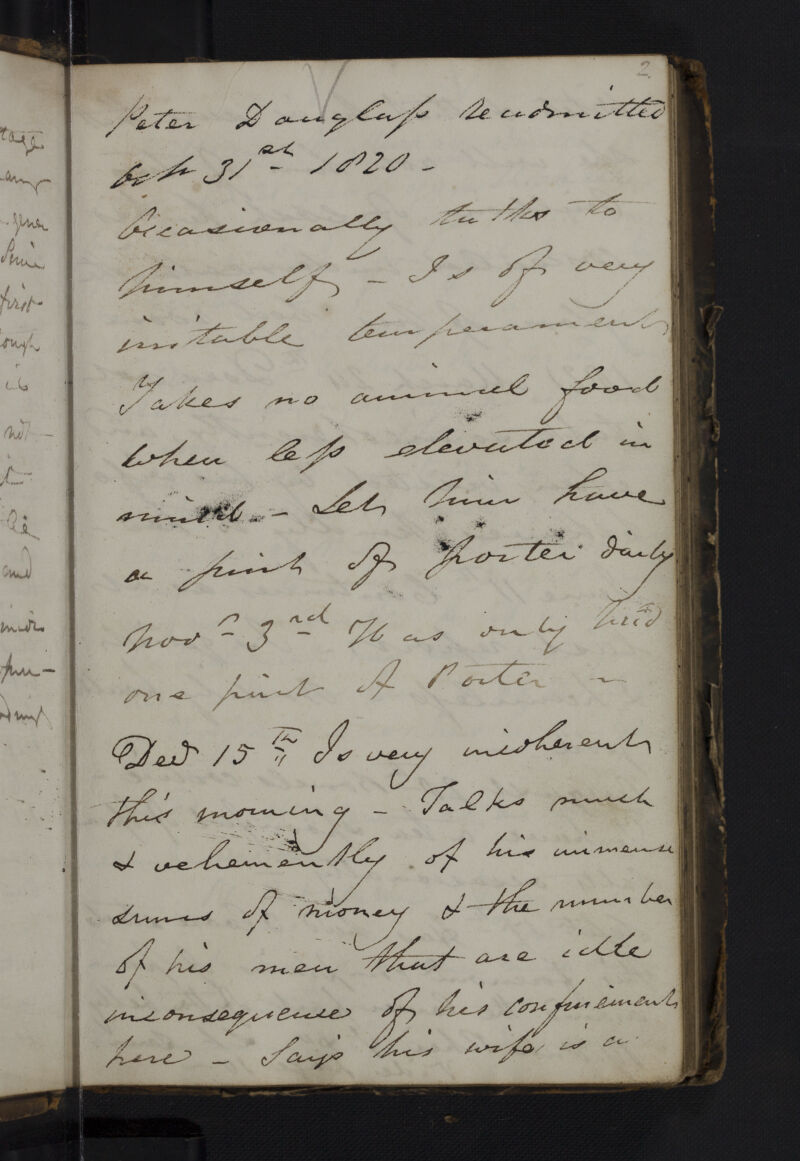 2
Peter Douglass readmitted
Octr 31st 1820 -
Occasionally talks to
himself - Is of very
irritable temperament
Takes no animal food
when less elevated in
mind - Let him have
a pint of Porter daily
Novr 3rd Has only had
one pint of Porter -
Decr 15th Is very incoherent
this morning - Talks much
& vehemently of his immense
sums of money & the number
of his men that are idle
inconsequense of his confinement
here - Says his wife is a